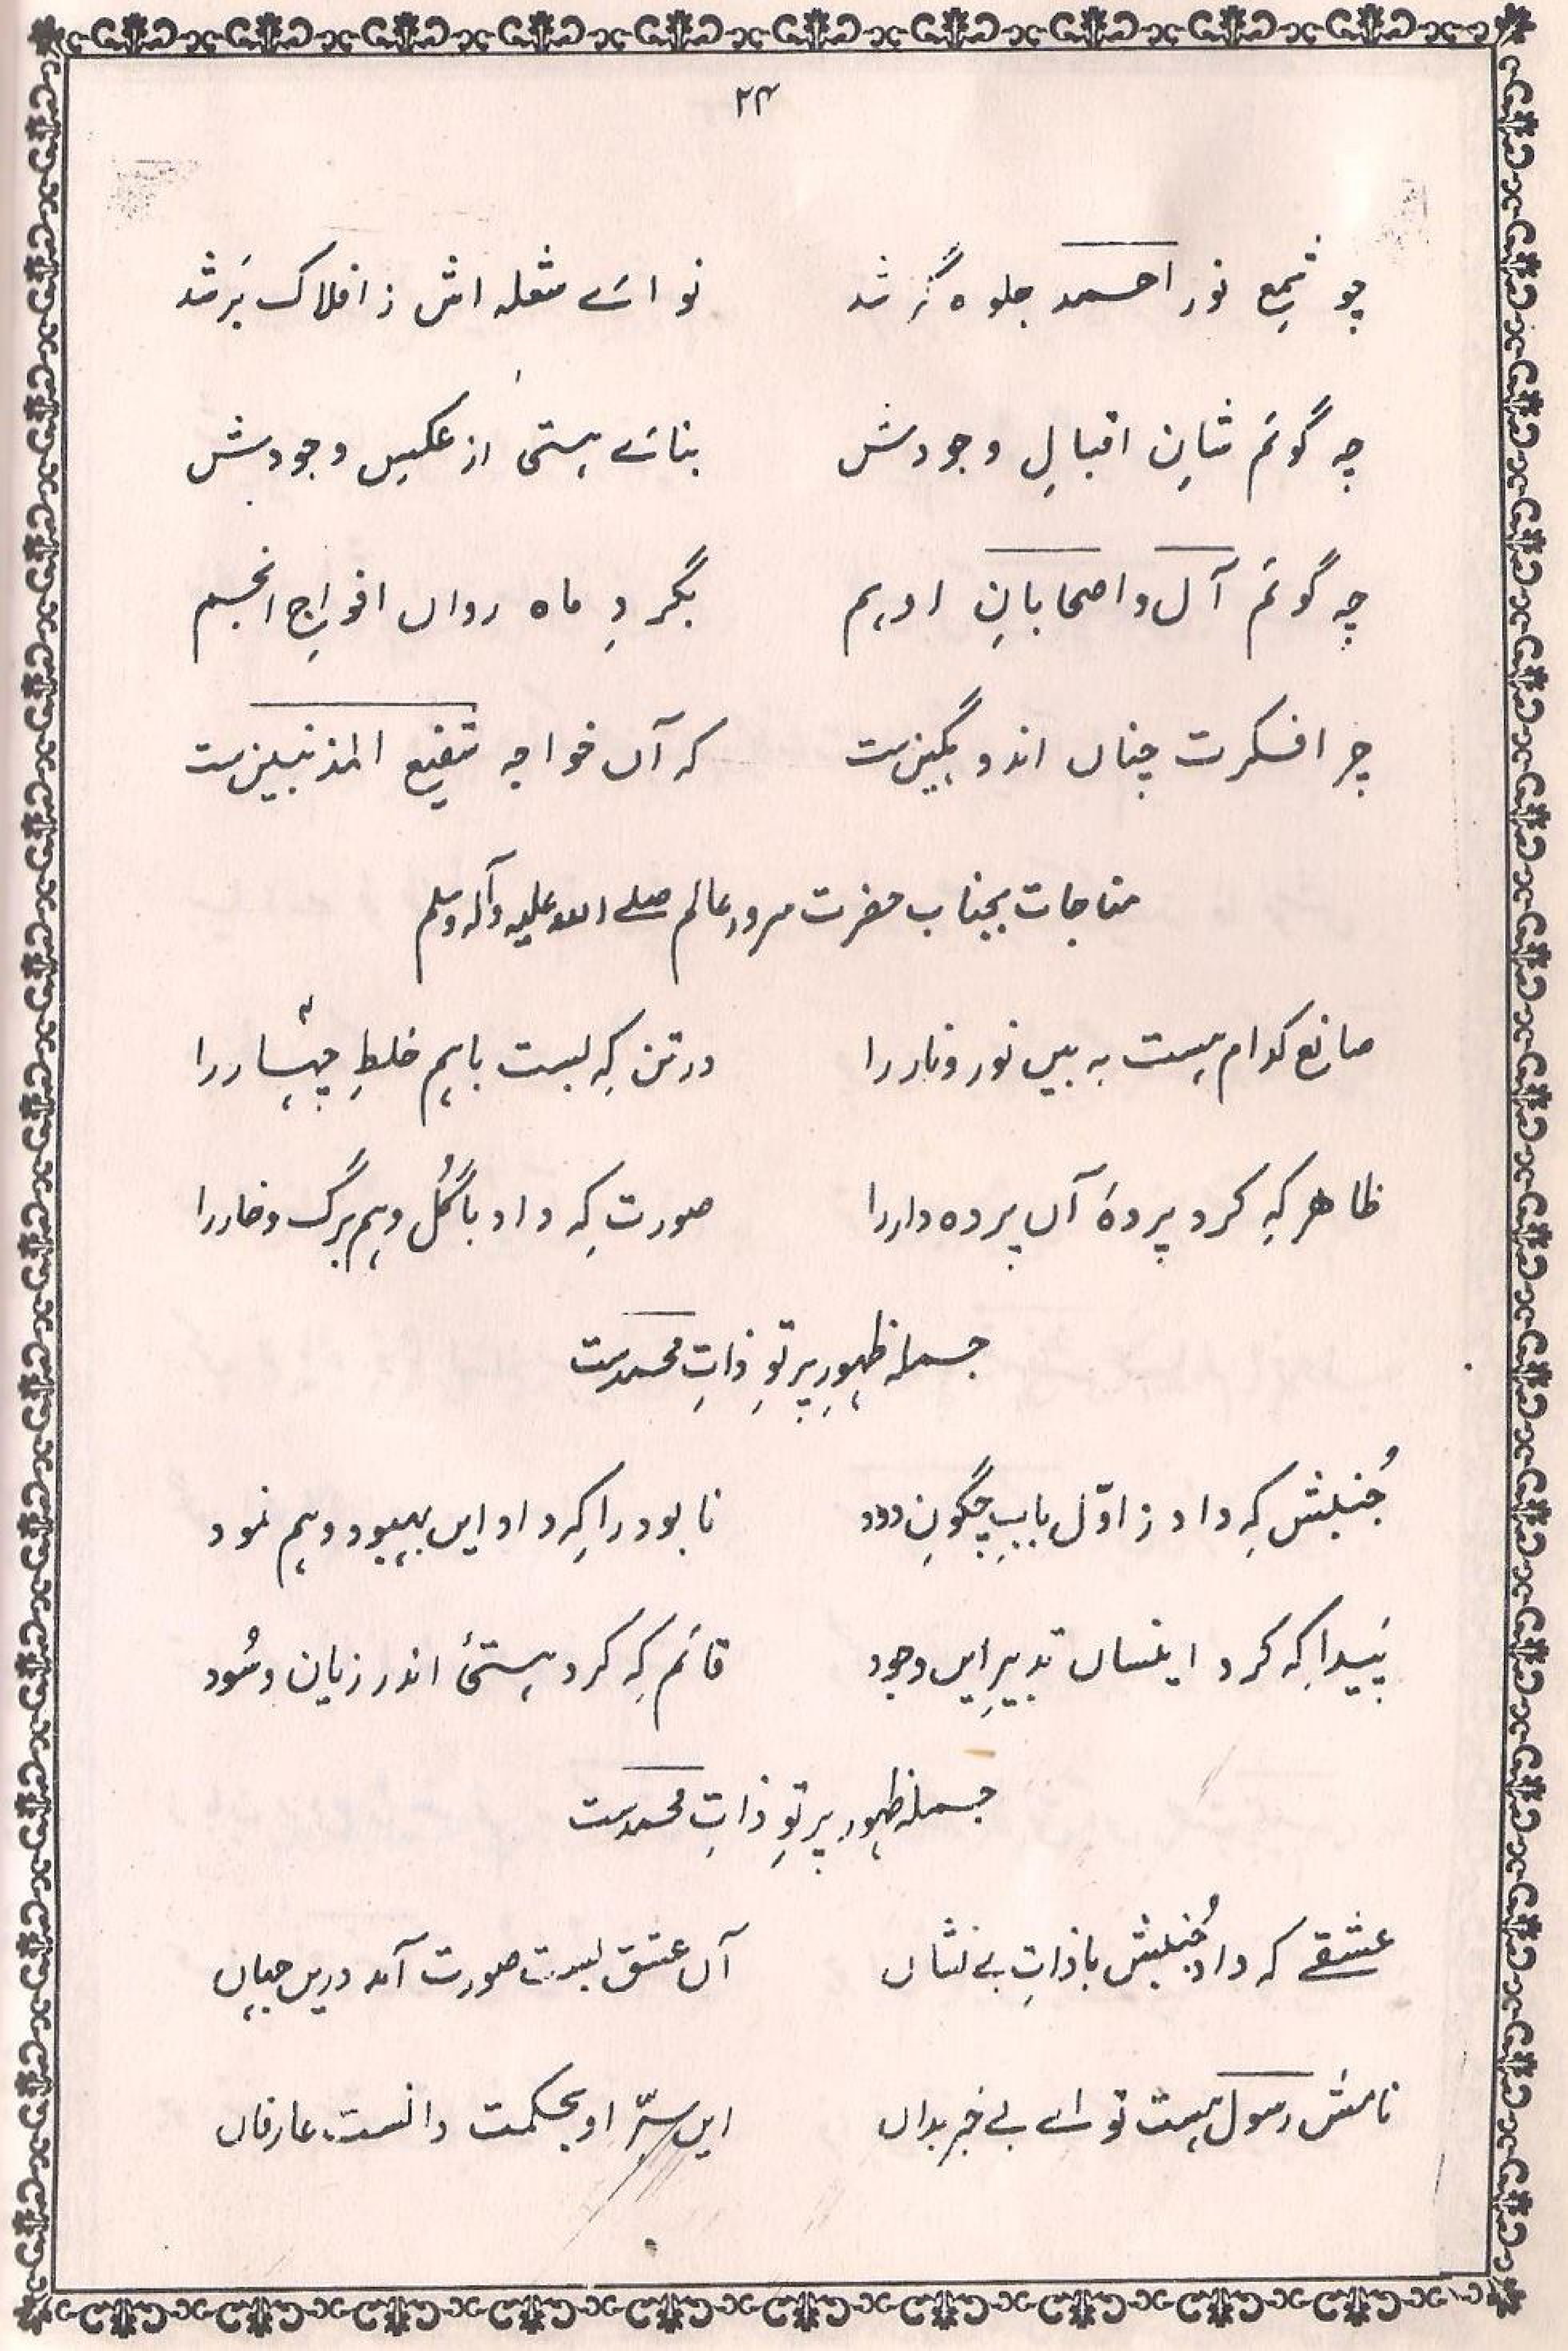 ۲۴
چو شمعِ نور احمد جلوہ گَر شد نوائے شعلہ اش ز افلاک بَر شد
چہ گوئم شانِ اقبالِ وجودش بنائے ہستیٔ از عکسِ وجودش
چہ گوئم آل و اصحابانِ اوہم بگردِ ماہ رواں افواجِ انجم
چرا فکرت چناں اندوہگین ست کہ آں خواجہ شفیع المذنبین ست
مناجات بجناب حضرت سرور عالم صلے اللہ علیہ وآلہ وسلم
صانع کدام ہست بہ بیں نور و نار را در تن کِہ بست باہم خلطِ چہار را
ظاہر کِہ کرد پردۂ آں پردہ دار را صورت کِہ داد با گُل وہم برگ و خار را
جملہ ظہورِ پرتوِ ذاتِ محمد ست
جُنبش کِہ داد ز اوّل بابِ چگونِ دود نابود را کِہ داد ایں بہبود وہم نمود
پَیدا کِہ کرد اینساں تدبیرِ ایں وجود قائم کِہ کرد ہستیٔ اندر زیان و سُود
جملہ ظہور پرتوِ ذاتِ محمد ست
عشقے کہ داد جُنبش با ذاتِ بے نشاں آں عشق بست صورت آمد دریں جہاں
نامش رسول ہست تو اے بے خبر بداں ایں سرِّ او بحکمت دانست عارفاں